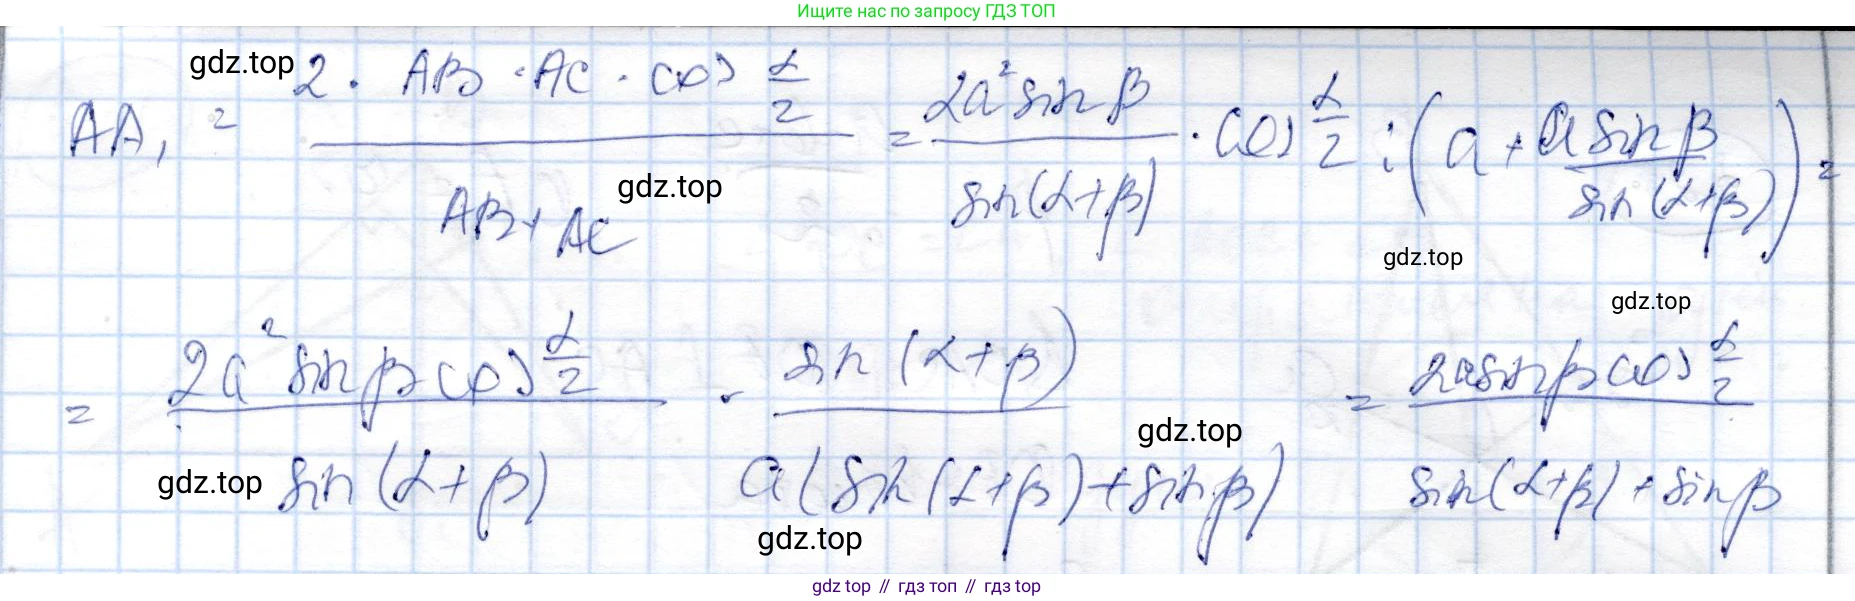 Ищите нас по запросу ГДЗ ТОП
gdz.top
AA₁ = (2 · AB · AC · cos α/2) / (AB + AC) = (2a² sin β) / (sin(α+β)) · cos α/2 : (a + (a sin β) / (sin(α+β))) =
gdz.top
gdz.top
gdz.top
= (2a² sin β cos α/2) / (sin(α+β)) · (sin(α+β)) / (a(sin(α+β)+sin β)) = (2a sin β cos α/2) / (sin(α+β) + sin β)
gdz.top
gdz.top
gdz.top
gdz top // гдз топ // гдз top